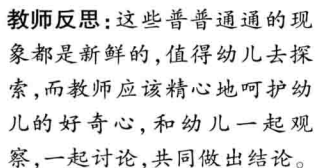 教师反思:这些普普通通的现
象都是新鲜的,值得幼儿去探
索,而教师应该精心地呵护幼
儿的好奇心,和幼儿一起观
察,一起讨论,共同做出结论。